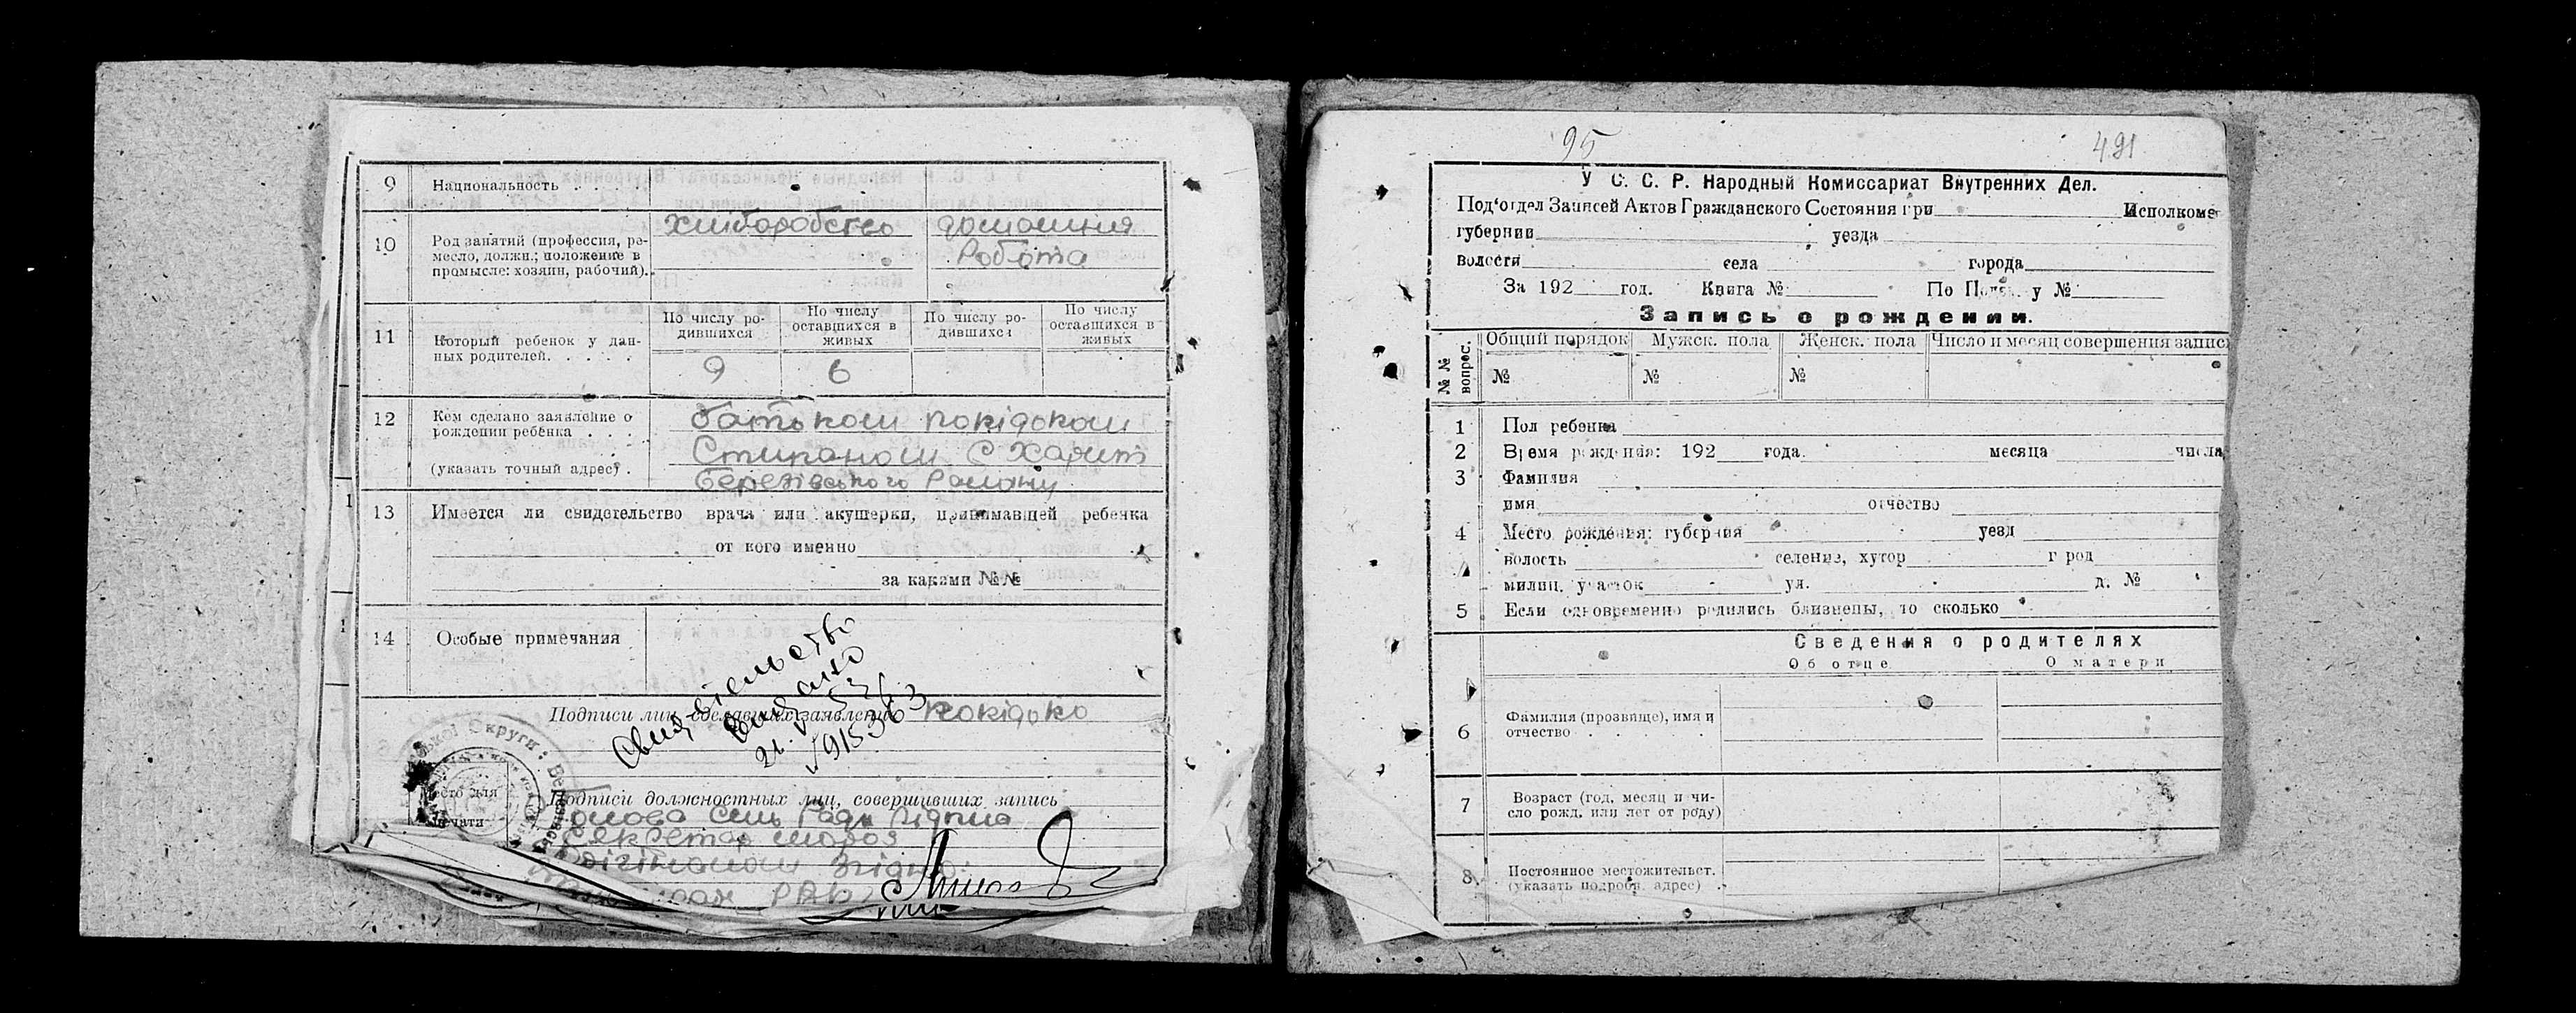 9 Национальность . . . .
10 Род занятий (профессия, ре-
месло, должн.; положение в
промысле: хозяин, рабочий).
хліборобство
домашня
робота
11 Который ребенок у дан-
ных родителей. . . . .
По числу ро-
дившихся
По числу
оставшихся в
живых
По числу ро-
дившихся
По числу
оставшихся в
живых
9 6
12 Кем сделано заявление о
рождении ребенка . . . .
(указать точный адрес) .
батьком Покідьком
Степаном С
Березівського Району
13 Имеется ли свидетельство врача или акушерки, принимавшей ребенка
от кого именно
за какими №№
14 Особые примечания
Свидетельство
выдано
Подписи лиц, сделавших заявление Покідько
Округи
Место для
печати
Подписи должностных лиц, совершивших запись
Голова Сіль Ради Підпис
Секретар Мороз
З оригіналом згідно:
95
491
У С. С. Р. Народный Комиссариат Внутренних Дел.
Под'отдел Записей Актов Гражданского Состояния при Исполкоме
губернии уезда
волости села города
За 192 год. Книга № По у №
Запись о рождении.
№№ вопрес.
Общий порядок Мужск. пола Женск. пола Число и месяц совершения записи
№ № №
1 Пол ребенка
2 Время рождения: 192 года. месяца числа
3 Фамилия
имя отчество
4 Место рождения: губерния уезд
волость селение, хутор город
милиц. участок ул. д. №
5 Если одновременно родились близнецы, то сколько
Сведения о родителях
Об отце О матери
6 Фамилия (прозвище), имя и
отчество . . . . .
7 Возраст (год, месяц и чи-
сло рожд. или лет от роду)
8. Постоянное местожительст.
(указать подробн. адрес) .